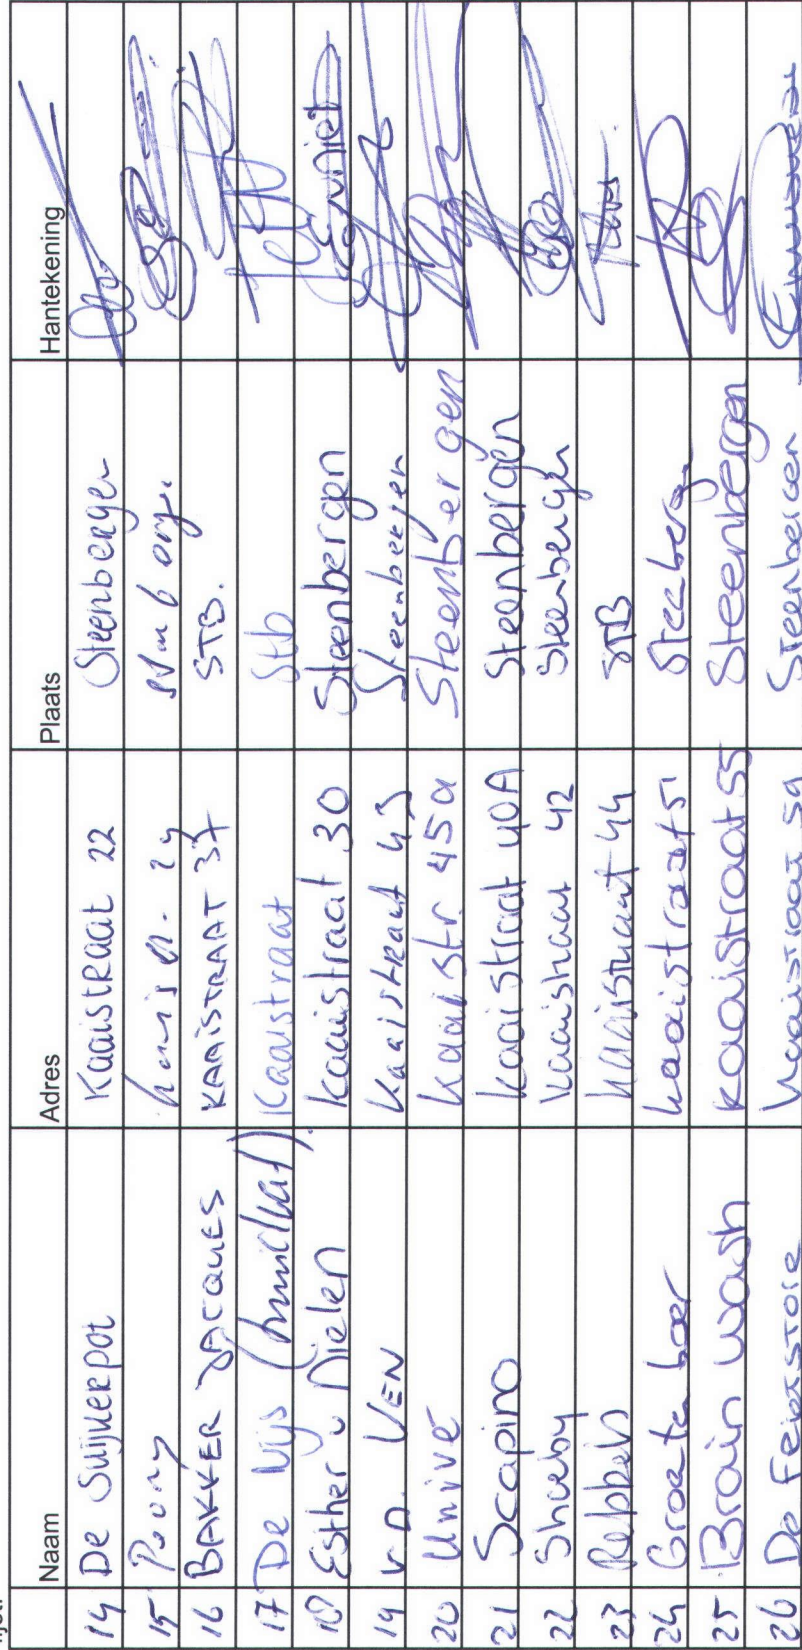 Naam Adres Plaats Hantekening
14 De Suijkerpot Kaaistraat 22 Steenbergen
15 24
16 BAKKER JACQUES KAAISTRAAT 37 STB.
17 De Vijs Kaaistraat Stb
18 Esther v Dielen Kaaistraat 30 Steenbergen
19 v.D. VEN Kaaistraat 43 Steenbergen
20 Univé Kaaistr 45a Steenbergen
21 Scapino Kaaistraat 40A Steenbergen
22 Shoeby Kaaistraat 42 Steenbergen
23 Kaaistraat 44 STB
24 Groenteboer Kaaistraat 51
25 Brain Wash Kaaistraat 55 Steenbergen
26 De Feesstore Kaaistraat 59 Steenbergen